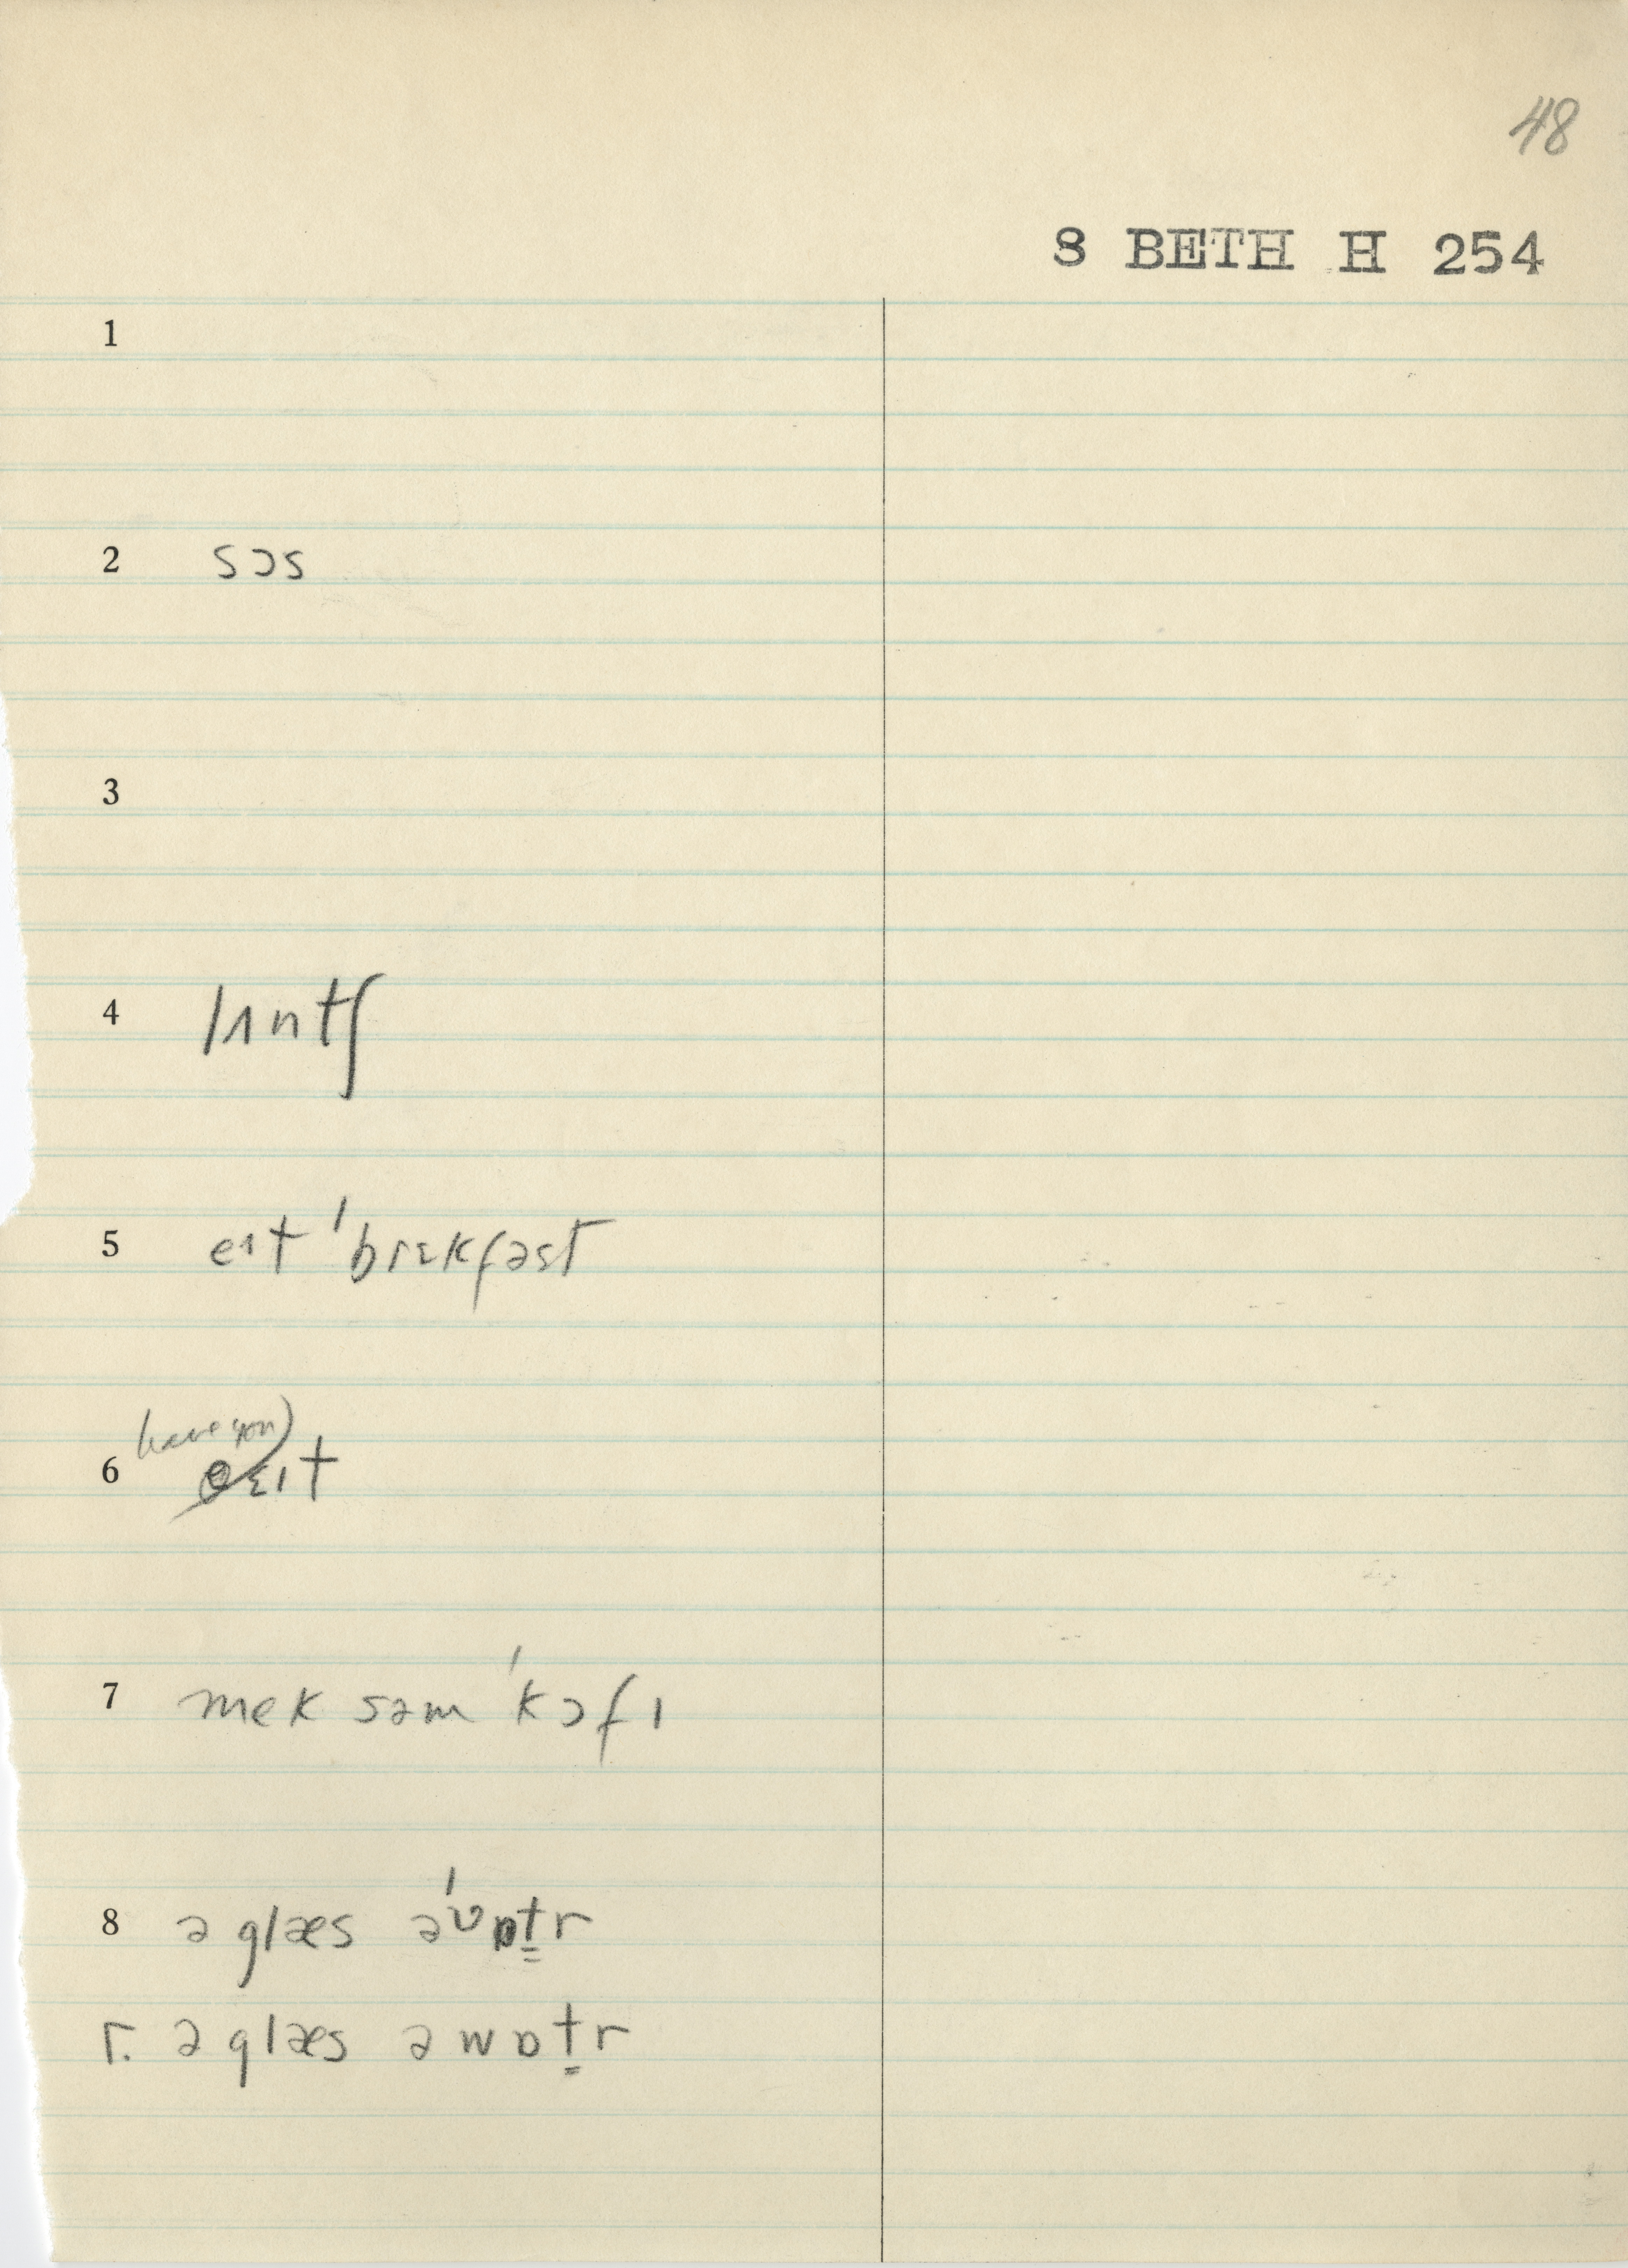 48
8 BETH H 254
1
2 sɔs
3
4 lʌntʃ
5 eɪt ˈbrɛkfəst
have you)
6 ɛɪt
7 mek səm ˈkɔfɪ
8 ə glæs əˈʋɒt̳r
r. ə glæs əwɒt̳r